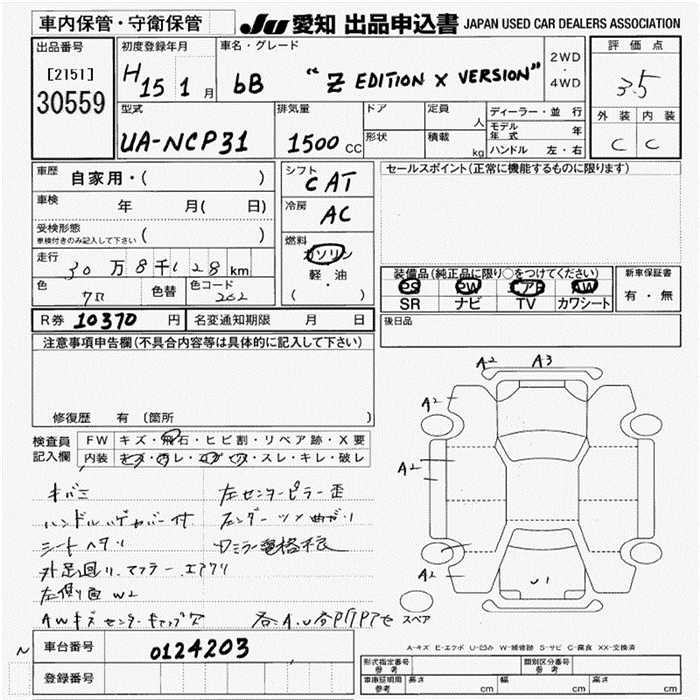 車内保管・守衛保管
JU 愛知 出品申込書 JAPAN USED CAR DEALERS ASSOCIATION
出品番号
[2151]
30559
初度登録年月
H15 1月
車名・グレード
bB "Z EDITION X VERSION"
2WD
・
4WD
評価点
3.5
外装 内装
C C
型式
UA-NCP31
排気量
1500 CC
ドア
形状
定員 人
積載 kg
ディーラー・並行
モデル年式 年
ハンドル 左・右
車歴 自家用・( )
車検 年 月( 日)
受検形態
車検付きのみ記入して下さい ( )
走行 30万8千128km
色 色替 色コード
202
シフト
CAT
冷房
AC
燃料
ガソリン
軽・油
( )
セールスポイント(正常に機能するものに限ります)
装備品(純正品に限り○をつけてください)
PS PW エアB AW
SR ナビ TV カワシート
新車保証書
有・無
R券 10370 円 名変通知期限 月 日
後日品
注意事項申告欄(不具合内容等は具体的に記入して下さい)
修復歴 有 〔箇所 〕
検査員
記入欄
FW キズ・飛石・ヒビ割・リペア跡・X要
内装 ・スレ・キレ・破レ
キバミ 左センターピラー歪
シートヘタリ
外足廻リ、マフラー、エアクリ
左側面W2
AWキズ センターキャップ欠
A2 A3
A2
A2
A2
U1
スペア
A-キズ E-エクボ U-凹み W-補修跡 S-サビ C-腐食 XX-交換済
N 車台番号 0124203
登録番号
形式指定番号 参考
類別区分番号
車庫証明用 参考 長さ cm 幅 cm 高さ cm